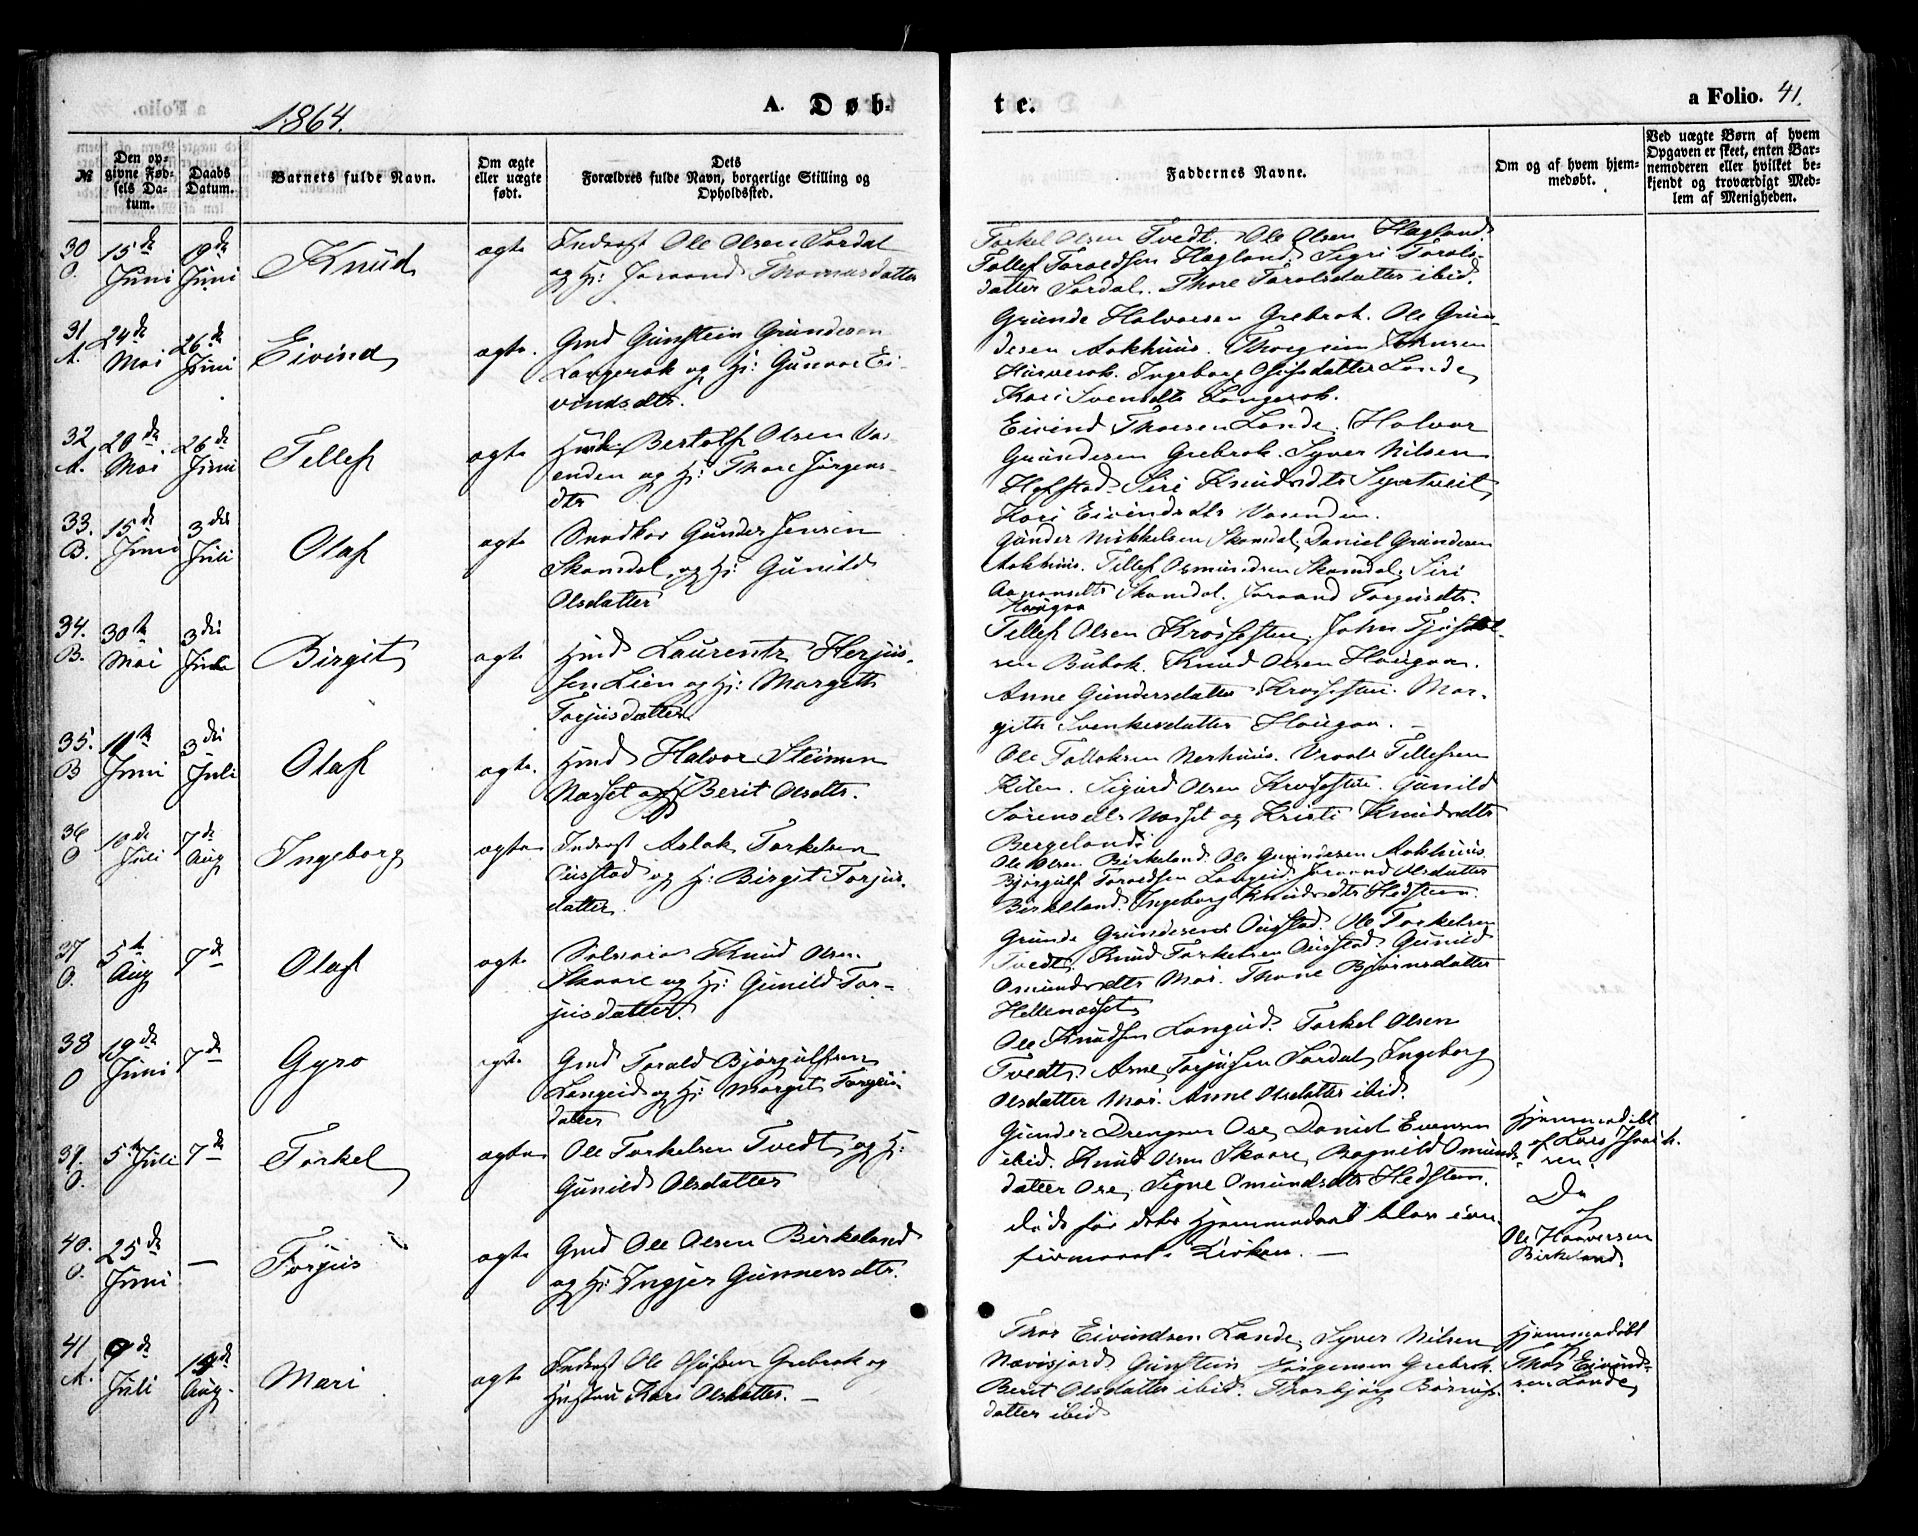 1864.
A. Døb-
te.
a Folio. 41.
№
Den op-
givne Fød-
sels Da-
tum.
Daabs
Datum.
Barnets fulde Navn.
Om ægte
eller uægte
født.
Dets
Forældres fulde Navn, borgerlige Stilling og
Opholdssted.
Faddernes Navne.
Om og af hvem hjem-
medøbt.
Ved uægte Børn af hvem
Opgaven er skeet, enten Bar-
nemoderen eller hvilket be-
kjendt og troværdigt Med-
lem af Menigheden.
30
O.
15de
Juni
19de
Juni
Knud
ægte
Inderst Ole Olsen Sordal
og Hj: Joraand Thomasdatter
Torkel Olsen Tvedt. Ole Olsen Hægland
Tollef Toroldsen Hægland, Sigri Torols-
datter Sordal. Thore Torolsdatter ibid.
31
A.
24de
Mai
26de
Juni
Eivind
ægte.
Gmd Gunstein Grundesen
Langerak og Hj: Gunvor Ei-
vindsdtr.
Grunde Halvorsen Grebrok. Ole Grun-
desen Aakhuus. Thorgrim Johnsen
Ingeborg Olufsdatter Lande,
Kari Svensdtr Langerak.
32
A.
20de
Mai
26de
Juni
Tellef
ægte
Hmd: Bertolf Olsen Va-
enden og Hj: Thore Jørgens-
dtr
Eivind Thorsen Lande. Halvor
Grundesen Grebrok. Syver Nilsen
Hofstad. Siri Knudsdtr Syrtveit,
Kari Eivindsdtr Vasenden.
33.
B.
15de
Juni
3die
Juli
Olaf
ægte
Gunder Jensen
Skomdal, og Hj: Gunild
Olsdatter
Gunder Mikkelsen Skomdal, Daniel Grundesen
Aakhuus. Tellef Osmundsen Skomdal, Siri
Aanonsdtr Skomdal. Joraand Torgusdtr.
Hougaa
34.
B.
30te
Mai
3die
Birgit
ægte
Hmd Laurentz Herjus-
sen Lien og Hj: Margith
Torjusdatter
Tellef Olsen Krossesten, John Tjøstol-
sen Bubok. Knud Olsen Hougaa.
Anne Gundersdatter Krossesten. Mar-
gith Svenkesdatter Hougaa. —
35.
B
Juni
3die
Juli
Olaf
ægte.
Hmd Halvor Steinsen
Næsset og Hj Berit Olsdtr.
Ole Folloksen Nerhuus. Vraal Tellefsen
Kilen. Sigurd Olsen Krossesten. Gunild
Sørensdtr Næsset og Kristi Knudsdtr
Bergeland.
36
O
10de
Juli
7de
Aug
Ingeborg
ægte
Inderst Aslak Torkelsen
Ousstad og Hj: Birgit Torjus-
datter.
Ole Olsen Birkeland. Ole Gundersen Aakhuus.
Bjørgulf Toroldsen Langeid, Joraand Olsdatter
Birkeland. Ingeborg Knudsdtr Hedsteen
37
O.
5te
Aug
7de
Olaf
ægte
Selveier Knud Olsen
Skaare og Hj: Gunild Tor-
jusdatter.
Grunde Grundesen Ousstad. Ole Torkelsen
Tvedt. Knud Torkelsen Ousstad. Gunild
Osmundsdtr Moi. Thone Bjørnsdatter
Hellenæsset
38
O
19de
Juni
7de
Gyro
ægte
Gmd Torald Bjørgulfsen
Langeid og Hj: Margit Torgeirs
datter
Ole Knudsen Langeid. Torkel Olsen
Tvedt. Arne Torjussen Sordal, Ingeborg
Olsdatter Moi. Anne Olsdatter ibid.
39.
O.
5te Juli
7de
Torkel
ægte
Ole Torkelsen Tvedt og Hj:
Gunild Olsdatter
Gunder Drengsen Ose, Daniel Evensen
ibid. Knud Olsen Skaare, Ragnild Omunds-
datter Ose, Signe Omundsdtr Hedsteen.
Hjemmedøbt
af Lars Isaak-
sen.
40.
O.
25de
Juni
—
Torjus
ægte
Gmd Ole Olsen Birkeland
og Hj: Ingjer Gunnersdtr.
døde før dets Hjemmedaab blev con-
firmeret i Kirken. —
Do
af
Ole Haaversen
Birkeland
41
A.
9de
Juli
Aug.
Mari
ægte
Inderst Ole Olufsen Grebrok og
Hustru Kari Olsdatter. —
Thor Eivindsen Lande, Syver Nilsen
Nævisjord, Gunstein Jørgensen Grebrok.
Berit Olsdatter ibid. Thorbjørg
datter ibid
Hjemmedøbt
af
Thor Eivind-
sen Lande,